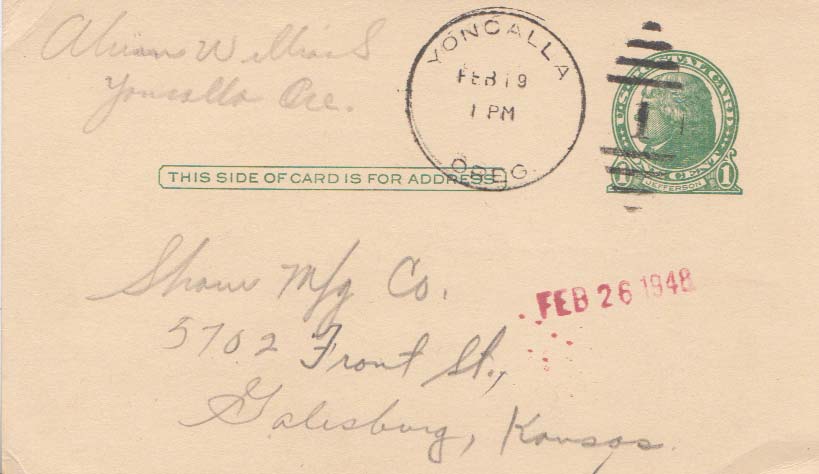 Willia S
Yoncalla Ore.
YONCALLA
FEB 19
1 PM
OREG.
U.S. POSTAL CARD
1 CENT 1
JEFFERSON
THIS SIDE OF CARD IS FOR ADDRESS
Shaw Mfg Co.
FEB 26 1948
5702 Front St.,
Galesburg, Kansas.